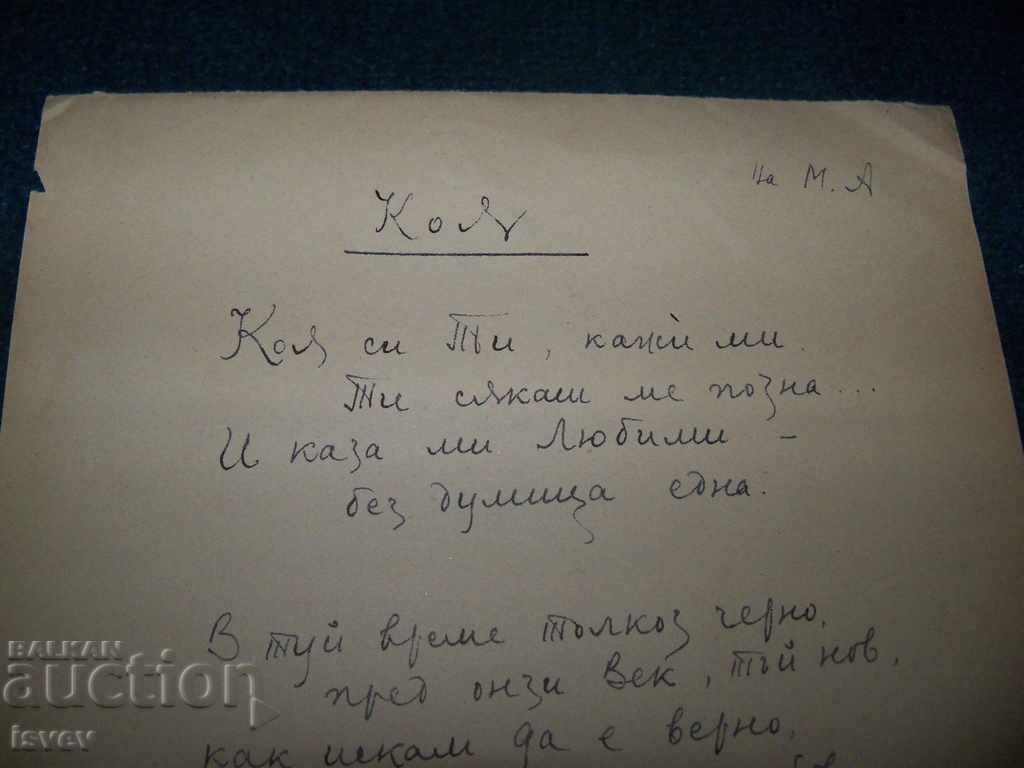 на М. А
Коя
Коя си Ти, кажи ми.
Ти сякаш ме позна...
И каза ми Любими –
без думица една.
В туй време толкоз черно,
пред онзи Век, тъй нов,
как искам да е верно,
BALKAN
auction
isvev